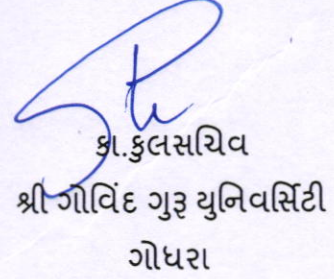 કા.કુલસચિવ
શ્રી ગોવિંદ ગુરૂ યુનિવર્સિટી
ગોધરા